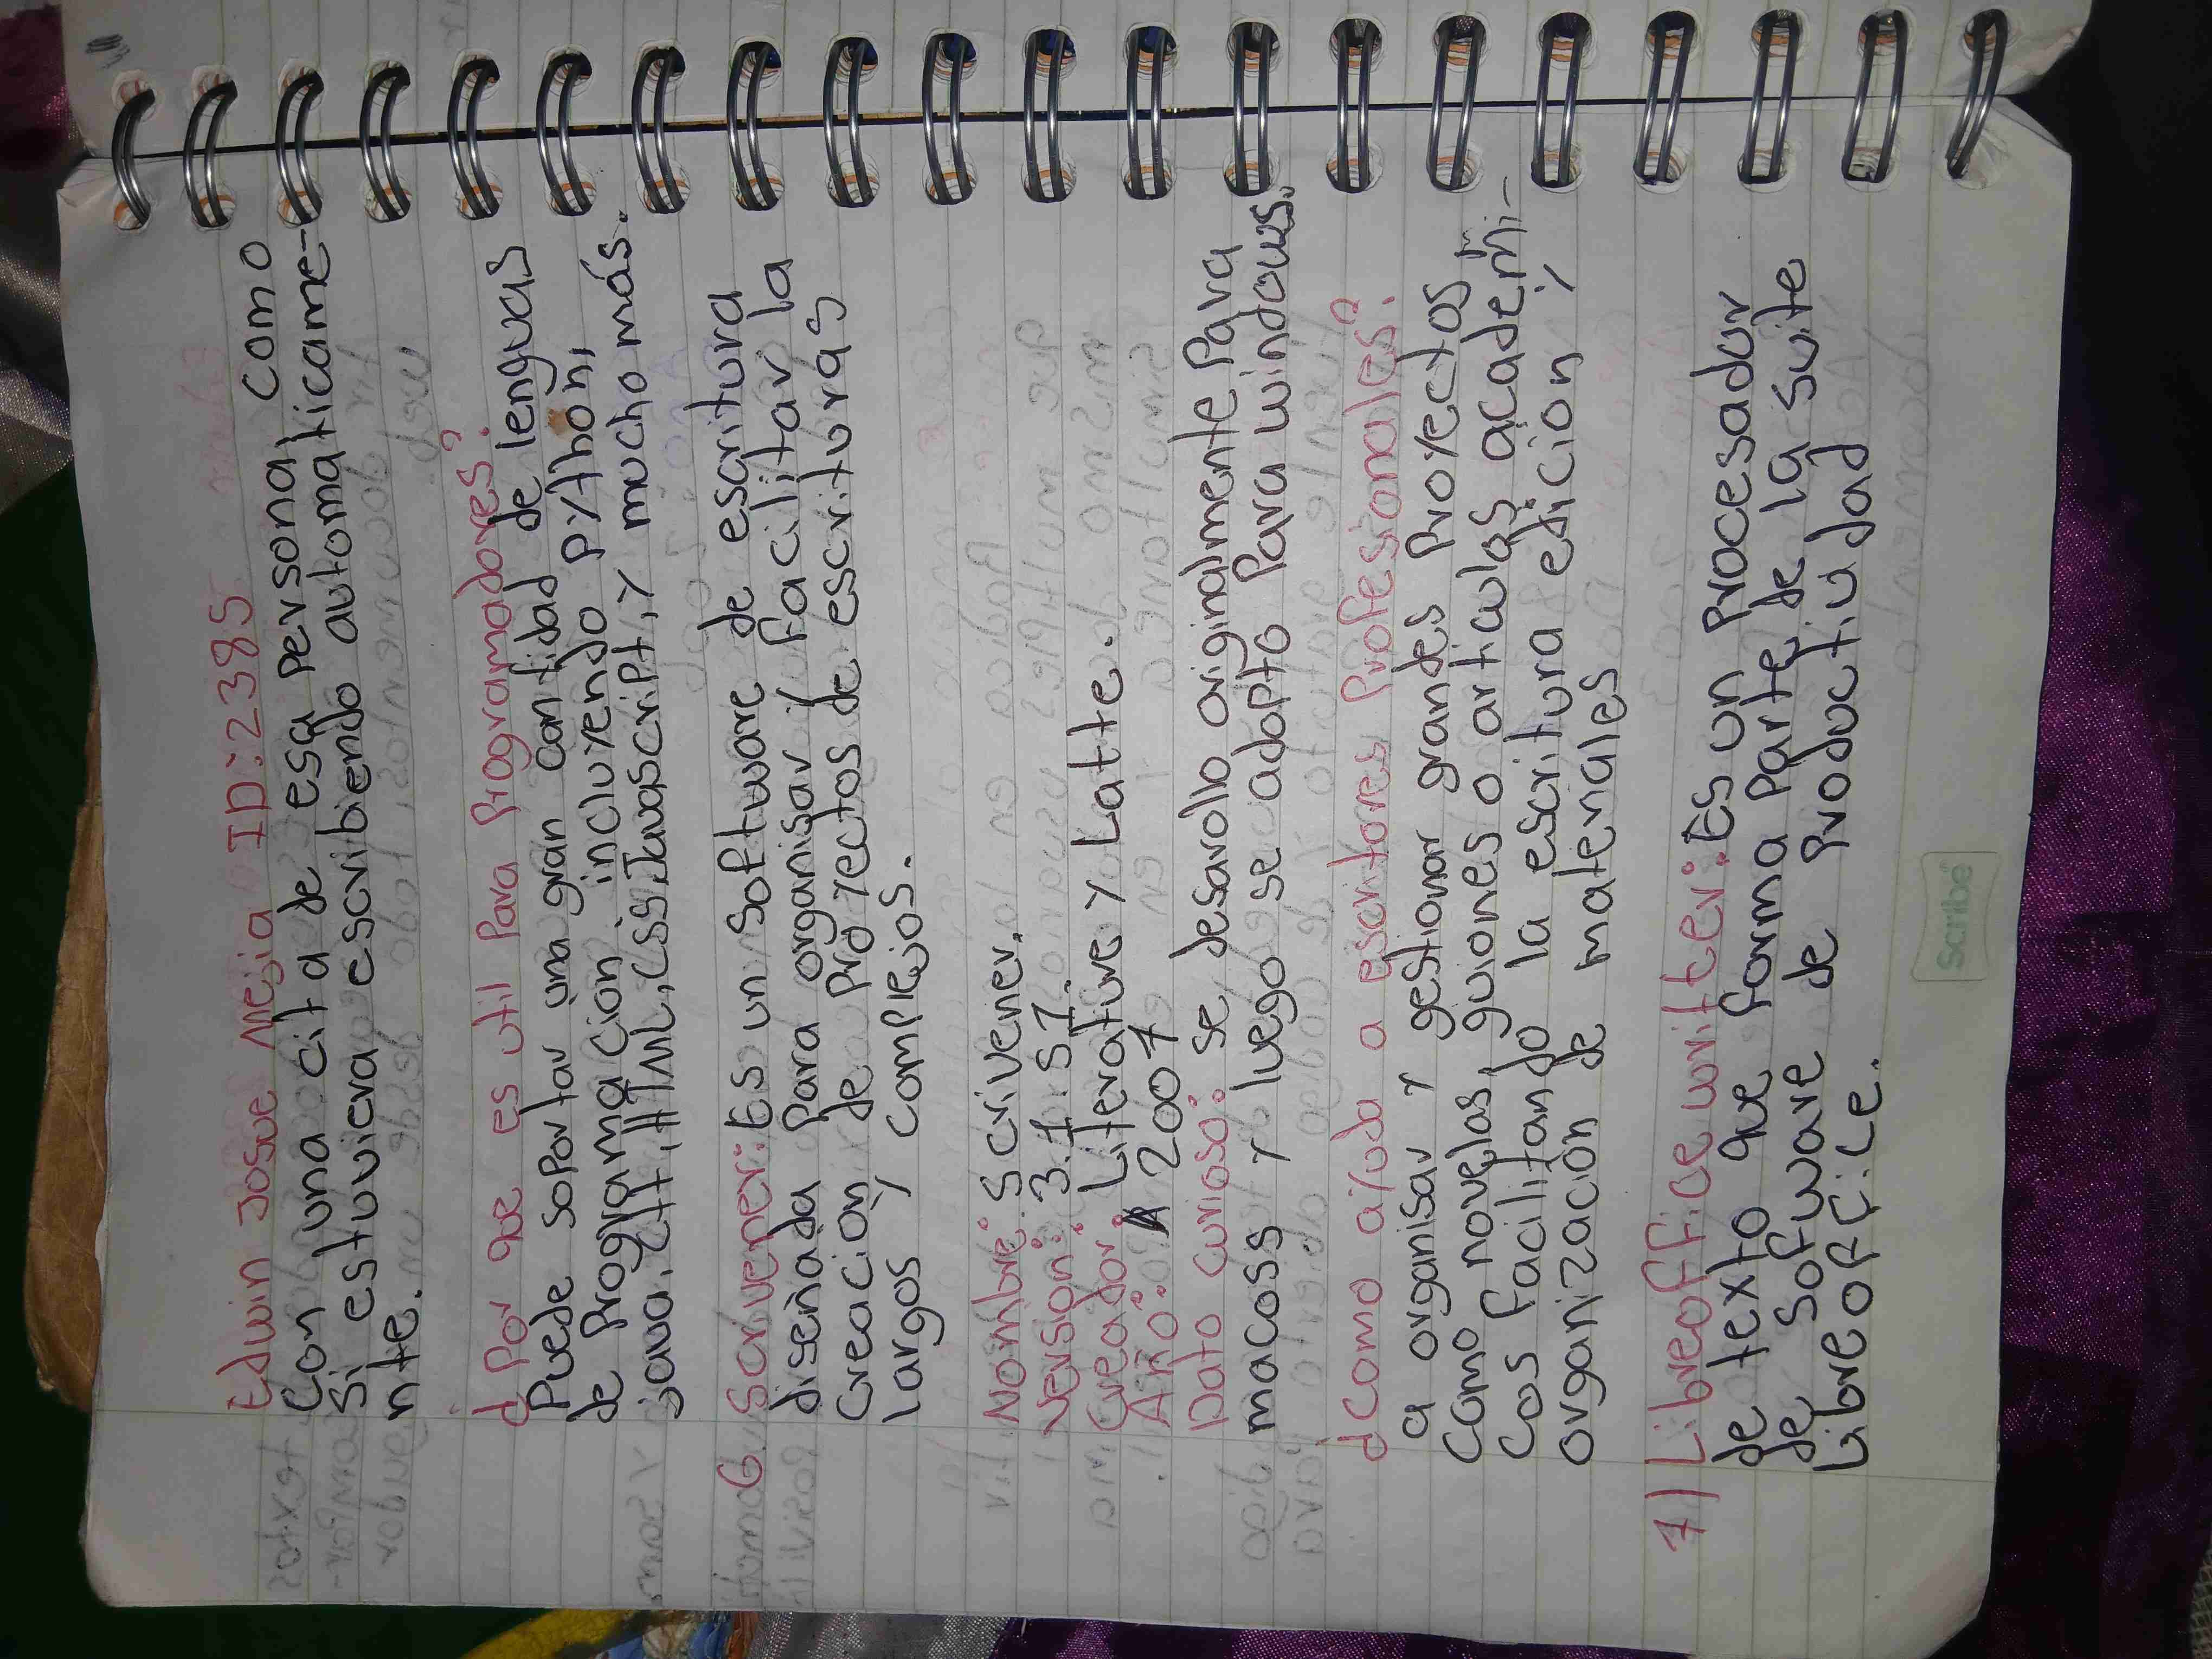 Edwin Josue Mejia ID:2385
Con una cita de esa persona como
si estuviera escribiendo automaticame-
nte.
¿Por que es util Para Programadores?
Puede soportar una gran cantidad de lenguas
de Programación incluyendo Python,
java, C++, HTML, CSS, Javascript, y mucho más.
6. Scrivener: Es un software de escritura
diseñada Para organisar y facilitar la
Creacion de Proyectos de escrituras
largos y complejos.
Nombre: Scrivener.
Version: 3.1.5 1.
Creador: Literature y Latte.
Año: 2007
Dato curioso: se desarollo originalmente Para
macoss y luego se adopto Para windows.
¿Como ayuda a escritores Profesionales?
a organisar y gestionar grandes Proyectos
Como novelas, guiones o articulos academi-
cos facilitando la escritura edicion y
organización de materiales
7) Libreoffice writer: Es un Procesador
de texto que forma Parte de la suite
de Sofware de Productiudad
Libreoffice.
Scribe